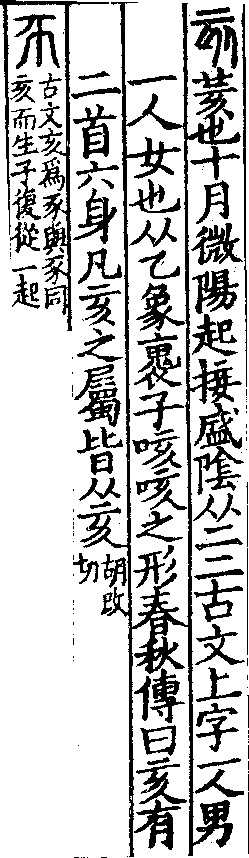 亥荄也十月微陽起接盛陰从二二古文上字一人男
一人女也从乙象裹子咳咳之形春秋傳曰亥有
二首六身凡亥之屬皆从亥胡改
切
古文亥爲豕與豕同
亥而生子復從一起